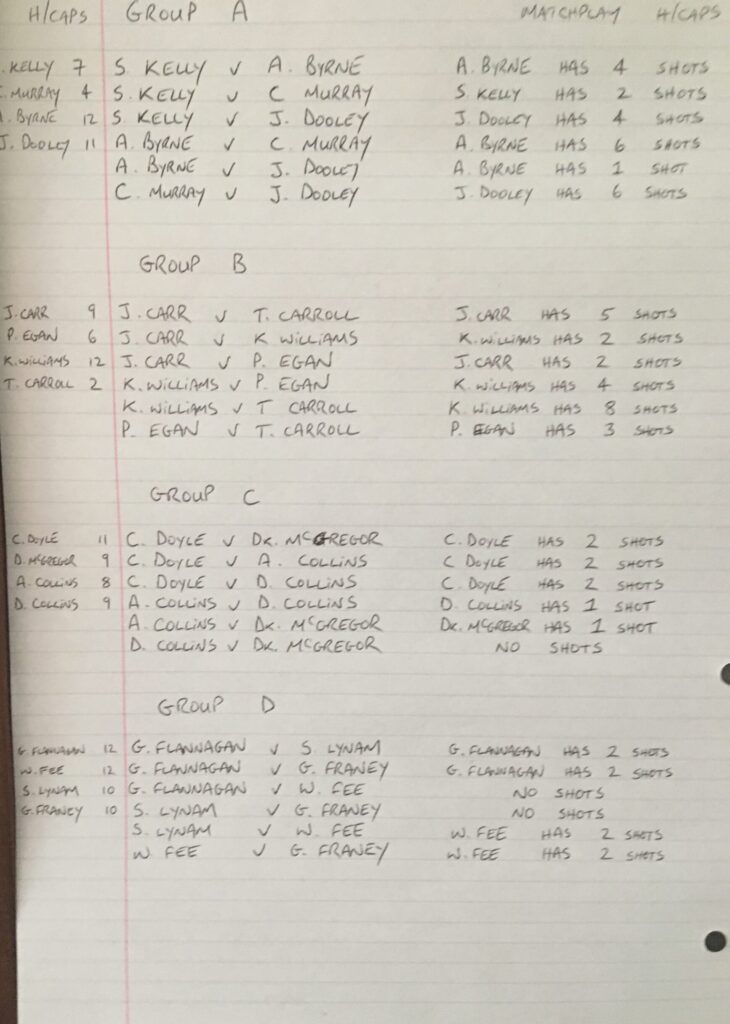 H/CAPS GROUP A MATCHPLAY H/CAPS
. KELLY 7 S. KELLY v A. BYRNE A. BYRNE HAS 4 SHOTS
. MURRAY 4 S. KELLY v C MURRAY S. KELLY HAS 2 SHOTS
. BYRNE 12 S. KELLY v J. DOOLEY J. DOOLEY HAS 4 SHOTS
J. DOOLEY 11 A. BYRNE v C. MURRAY A. BYRNE HAS 6 SHOTS
A. BYRNE v J. DOOLEY A. BYRNE HAS 1 SHOT
C. MURRAY v J. DOOLEY J. DOOLEY HAS 6 SHOTS
GROUP B
J. CARR 9 J. CARR v T. CARROLL J. CARR HAS 5 SHOTS
P. EGAN 6 J. CARR v K WILLIAMS K. WILLIAMS HAS 2 SHOTS
K. WILLIAMS 12 J. CARR v P. EGAN J. CARR HAS 2 SHOTS
T. CARROLL 2 K. WILLIAMS v P. EGAN K. WILLIAMS HAS 4 SHOTS
K. WILLIAMS v T CARROLL K. WILLIAMS HAS 8 SHOTS
P. EGAN v T. CARROLL P. EGAN HAS 3 SHOTS
GROUP C
C. DOYLE 11 C. DOYLE v DK. MCGREGOR C. DOYLE HAS 2 SHOTS
D. MCGREGOR 9 C. DOYLE v A. COLLINS C DOYLE HAS 2 SHOTS
A. COLLINS 8 C. DOYLE v D. COLLINS C. DOYLE HAS 2 SHOTS
D. COLLINS 9 A. COLLINS v D. COLLINS D. COLLINS HAS 1 SHOT
A. COLLINS v DK. MCGREGOR DK. MCGREGOR HAS 1 SHOT
D. COLLINS v DK. MCGREGOR NO SHOTS
GROUP D
G. FLANNAGAN 12 G. FLANNAGAN v S. LYNAM G. FLANNAGAN HAS 2 SHOTS
W. FEE 12 G. FLANNAGAN v G. FRANEY G. FLANNAGAN HAS 2 SHOTS
S. LYNAM 10 G. FLANNAGAN v W. FEE NO SHOTS
G. FRANEY 10 S. LYNAM v G. FRANEY NO SHOTS
S. LYNAM v W. FEE W. FEE HAS 2 SHOTS
W. FEE v G. FRANEY W. FEE HAS 2 SHOTS